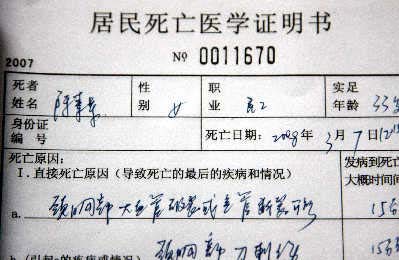 居民死亡医学证明书
№ 0011670
2007
死者姓名 性别 女 职业 实足年龄 33岁
身份证编号 死亡日期: 2008年 3月 7日
死亡原因: 发病到死亡
I. 直接死亡原因 (导致死亡的最后的疾病和情况) 大概时间间
a. 颈胸部大血管破裂或气管断裂可能 15分
颈胸部刀刺伤 15分